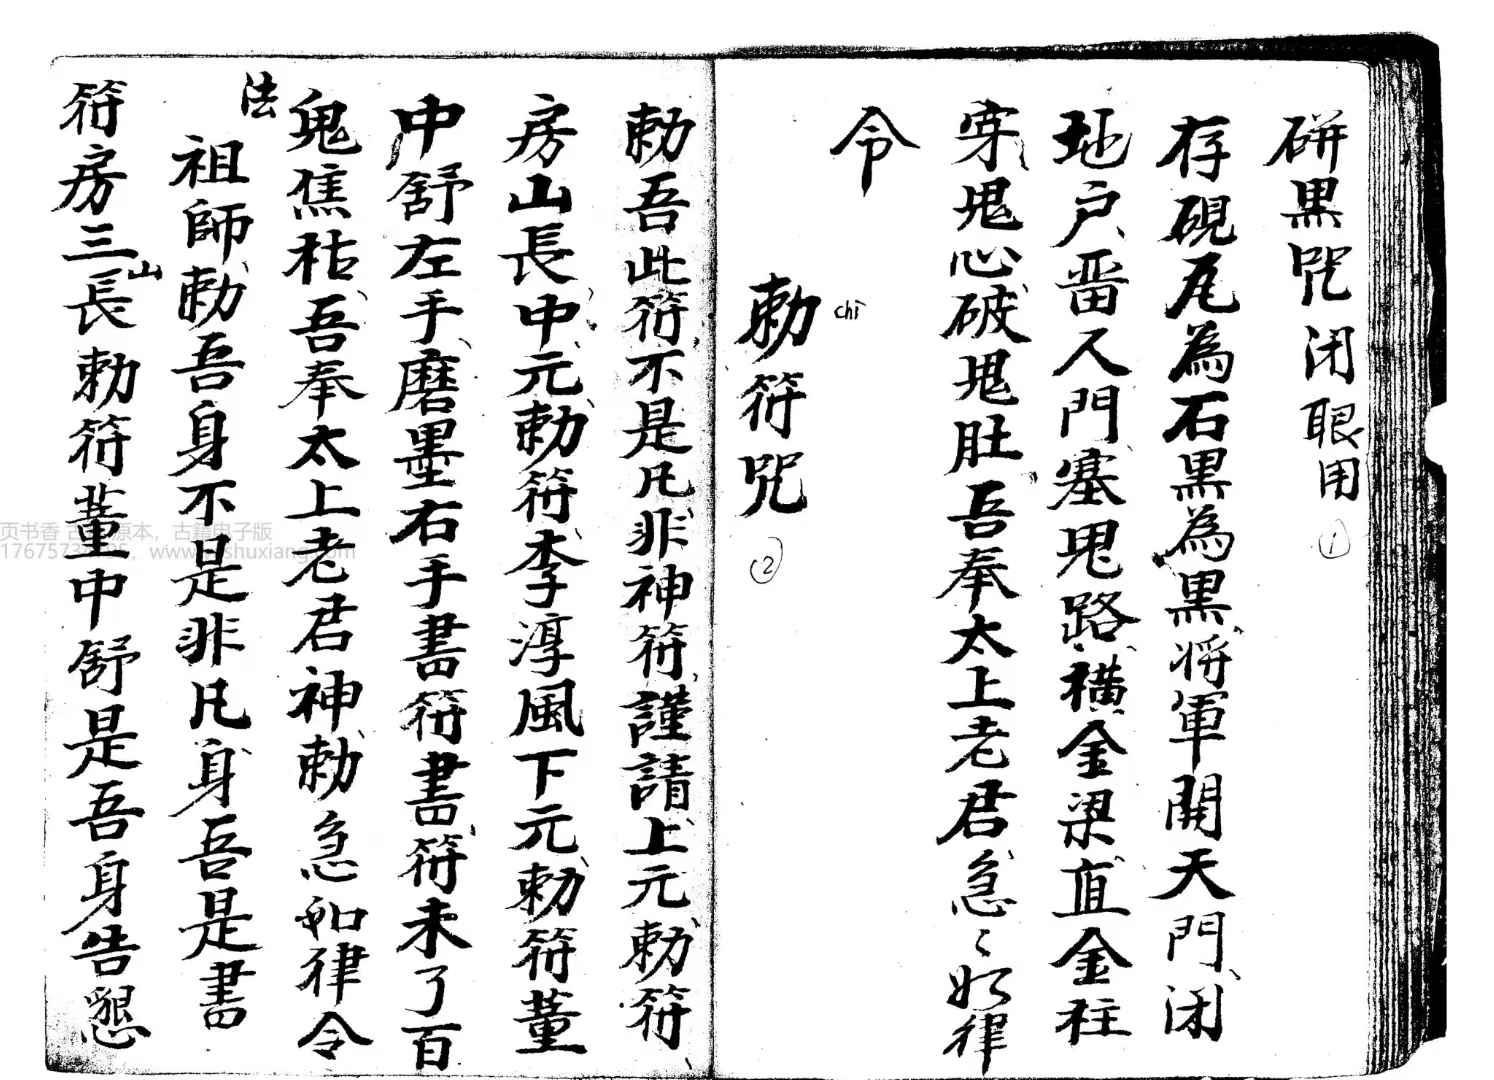 硑黑咒闭眼用①
存硯尾為石黑為黑将軍開天門闭
地户畱人門塞鬼路横金梁直金柱
穿鬼心破鬼肚吾奉太上老君急〻如律
令
勅符咒②
chì
勅吾此符不是凡非神符謹請上元勅符
房山長中元勅符李淳風下元勅符董
中舒左手磨墨右手書符書符未了百
鬼焦枯吾奉太上老君神勅急如律令
法
祖師勅吾身不是非凡身吾是書
符房三山長勅符董中舒是吾身告懇
古籍电子版